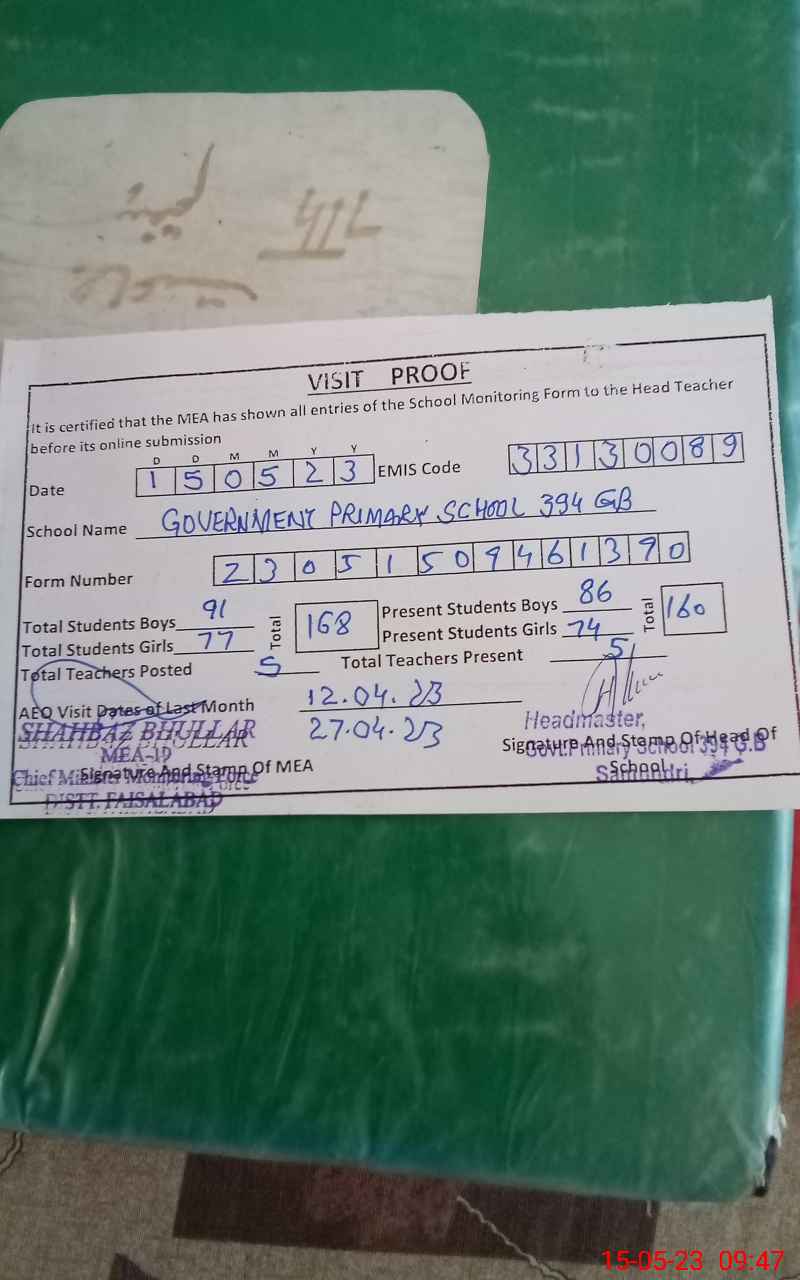 VISIT PROOF
It is certified that the MEA has shown all entries of the School Monitoring Form to the Head Teacher
before its online submission
D D M M Y Y
Date 1 5 0 5 2 3 EMIS Code 3 3 1 3 0 0 8 9
School Name GOVERNMENT PRIMARY SCHOOL 394 GB
Form Number 2 3 0 5 1 5 0 9 4 6 1 3 9 0
Total Students Boys 91 Total 168 Present Students Boys 86 Total 160
Total Students Girls 77 Present Students Girls 74
Total Teachers Posted 5 Total Teachers Present 5
AEO Visit Dates of Last Month 12.04.23
27.04.23
SHAHBAZ BHULLAR
MEA-10
Chief Minister Monitoring Force
Signature And Stamp Of MEA
DISTT. FAISALABAD
Headmaster,
Signature And Stamp Of Head Of
Govt. Primary School 394 G.B
School
Samundri
15-05-23 09:47